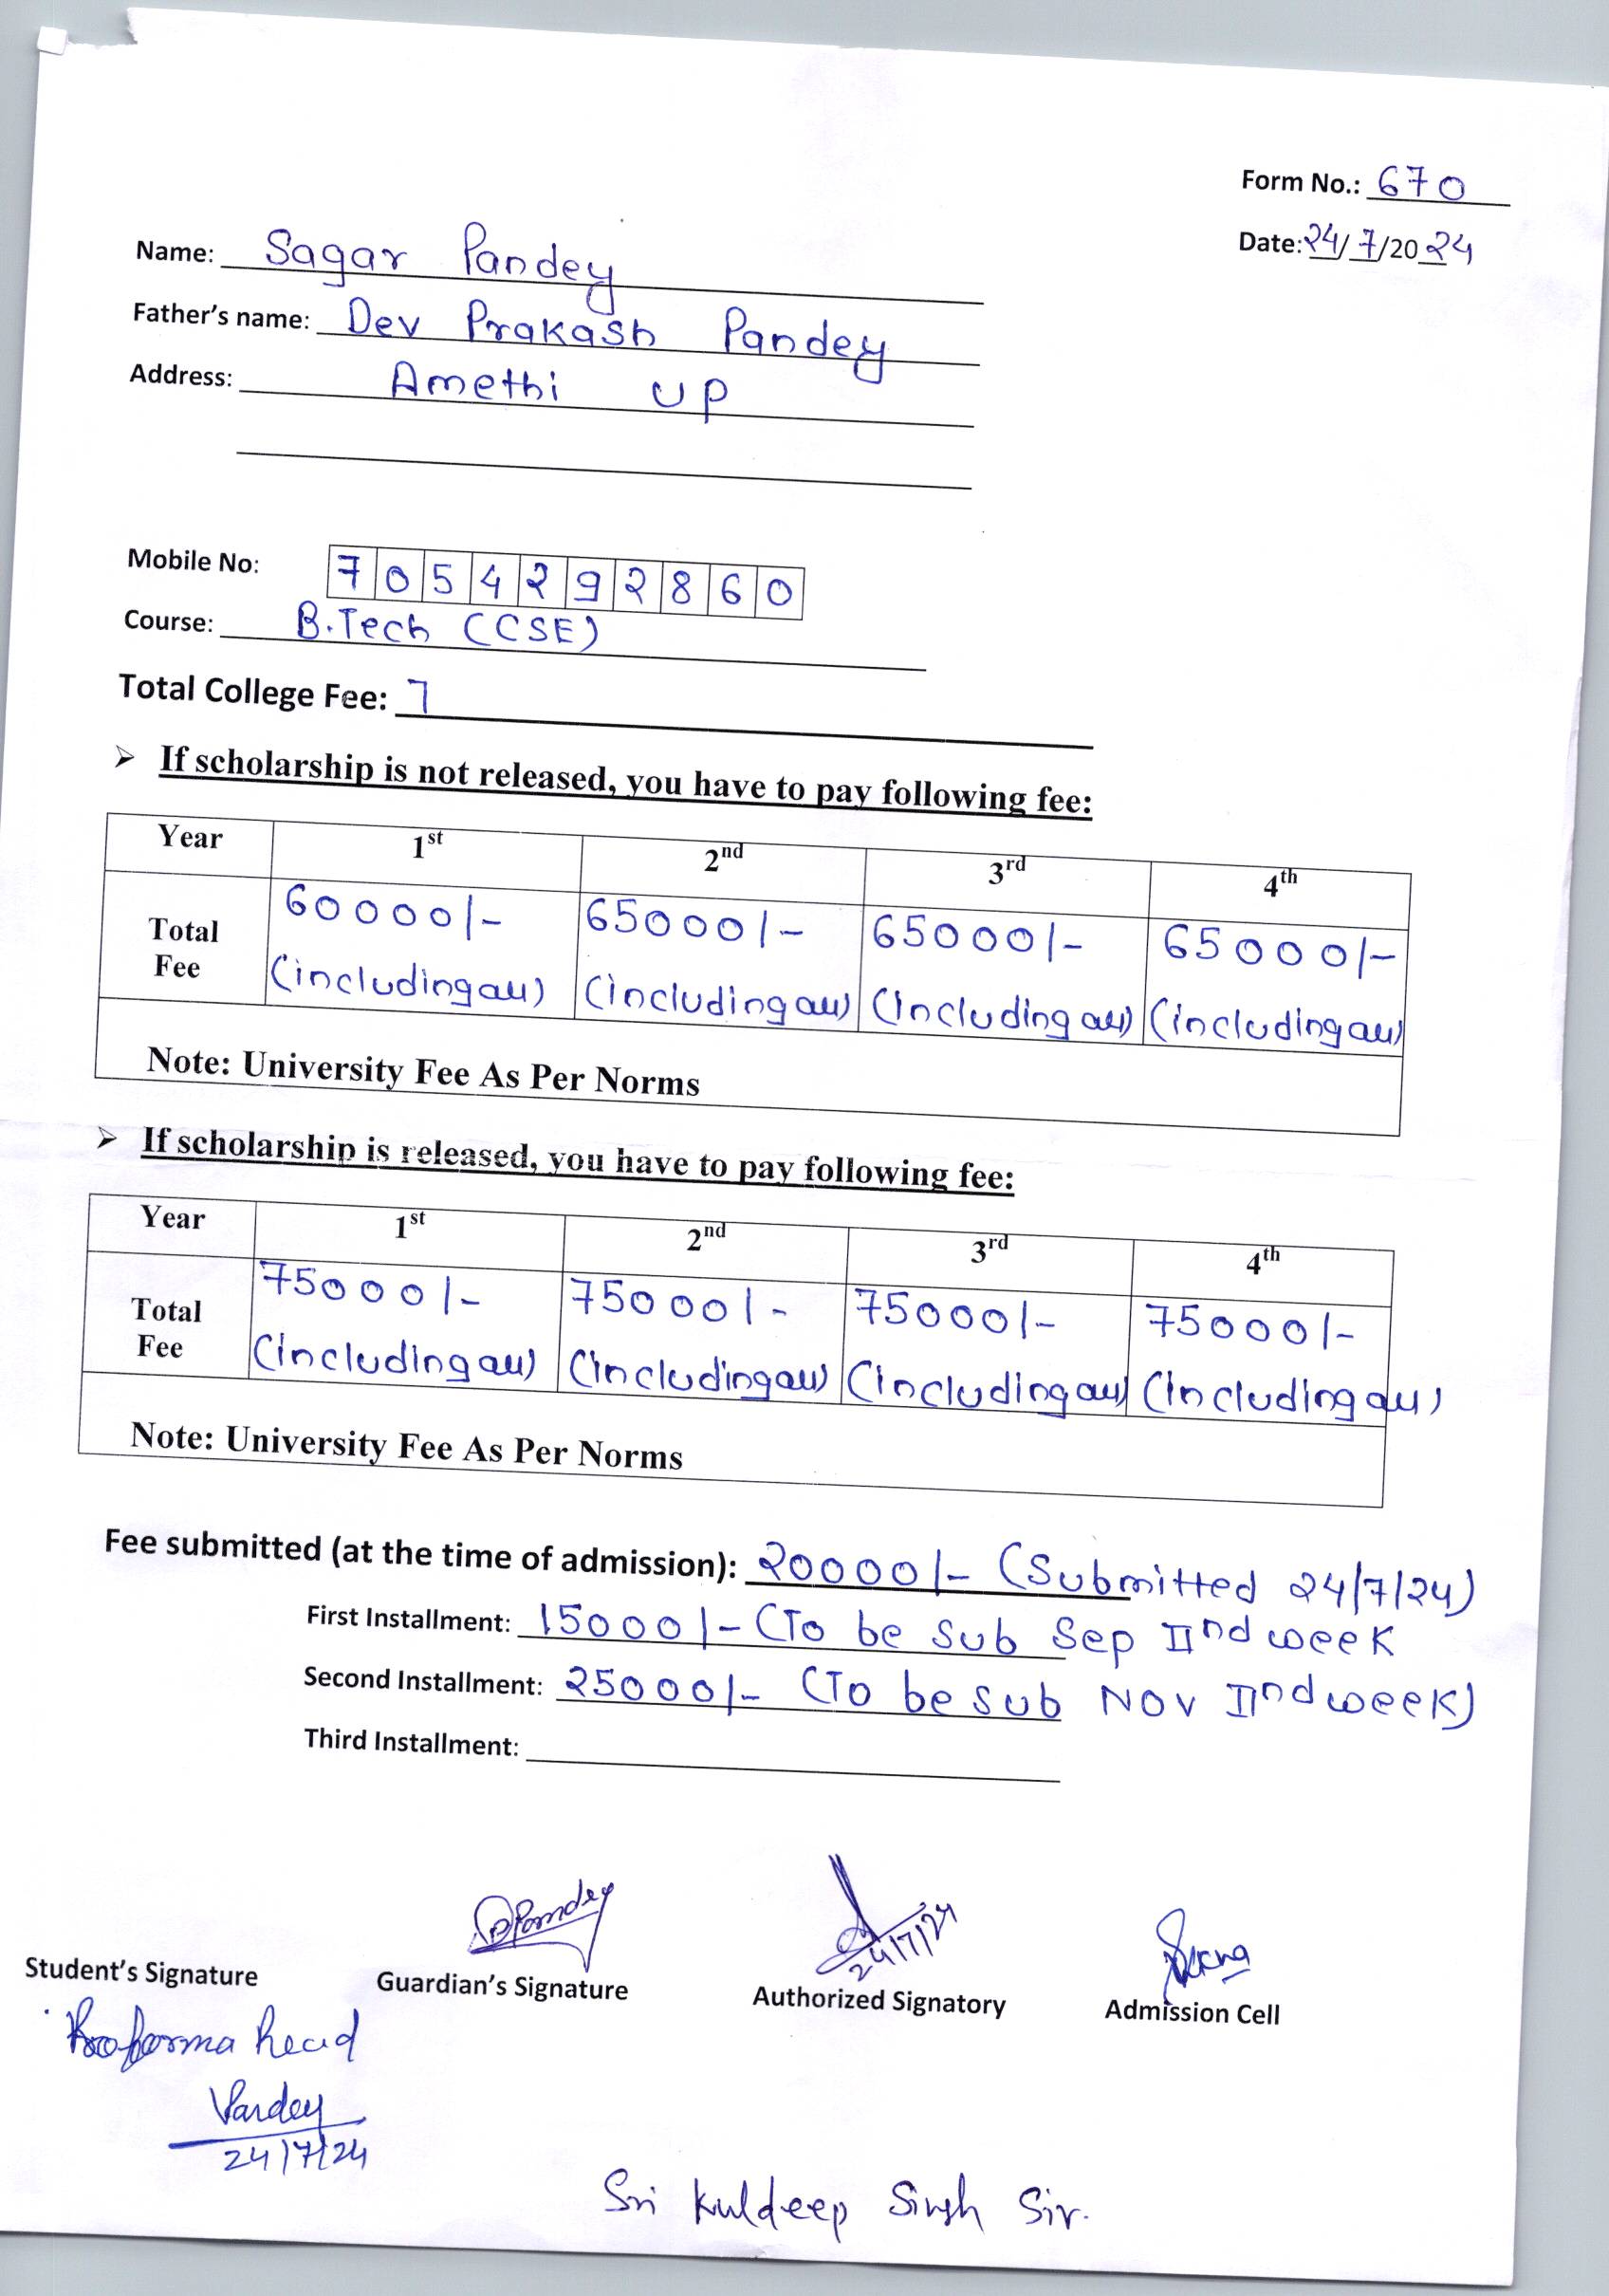 Form No.: 670
Date: 24/7/2024
Name: Sagar Pandey
Father's name: Dev Prakash Pandey
Address: Amethi UP
Mobile No: 7054292860
Course: B.Tech (CSE)
Total College Fee: 7
➢ If scholarship is not released, you have to pay following fee:
Year 1st 2nd 3rd 4th
Total Fee 60000/- 65000/- 65000/- 65000/-
(including all) (including all) (including all) (including all)
Note: University Fee As Per Norms
➢ If scholarship is released, you have to pay following fee:
Year 1st 2nd 3rd 4th
Total Fee 75000/- 75000/- 75000/- 75000/-
(including all) (including all) (including all) (including all)
Note: University Fee As Per Norms
Fee submitted (at the time of admission): 20000/- (Submitted 24/7/24)
First Installment: 15000/- (To be sub Sep IInd week
Second Installment: 25000/- (To be sub Nov IInd week)
Third Installment:
Pandey 24/7/24
Student's Signature Guardian's Signature Authorized Signatory Admission Cell
Proforma Read
Pandey
24/7/24
Sri Kuldeep Singh Sir.